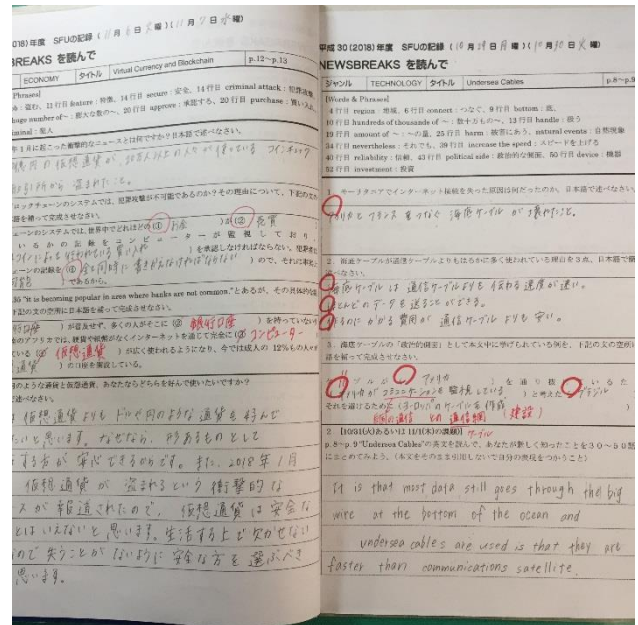 2018)年度 SFUの記録 (11月6日火曜)(11月7日水曜)
BREAKS を読んで
ECONOMY タイトル Virtual Currency and Blockchain p.12~p.13
Phrases]
盗む、11行目 feature:特徴、14行目 secure:安全、14行目 criminal attack:犯罪攻撃、
huge number of~:膨大な数の~、20行目 approve:承認する、20行目 purchase:買い入れ、
criminal:犯人
年1月に起こった衝撃的なニュースとは何ですか?日本語で述べなさい。
から 盗まれたこと。
ロックチェーンのシステムでは、犯罪攻撃が不可能であるのか?その理由について、下記の文の
語を補って完成させなさい。
ェーンのシステムでは、世界中でどれほどの(① お金 )が(② 売買
いるかの記録をコンピューターが監視しており、
を承認しなければならない。犯罪者は
ェーンの記録を
)ので、それは事実上
であるから。
"it is becoming popular in area where banks are not common."とあるが、その具体的な
下記の文の空所に日本語を補って完成させなさい。
が普及せず、多くの人がそこに(② 銀行口座 )を持っていない
のアフリカでは、硬貨や紙幣がなくインターネットを通じて完全に(③ コンピューター
ている(④ 仮想通貨 )が広く使われるようになり、今では成人の12%もの人々が
通貨 )の口座を開設している。
円のような通貨と仮想通貨、あなたならどちらを好んで使いたいですか?
述べなさい。
仮想通貨よりもドルや円のような通貨を好んで
いと思います。なぜなら、形あるものとして
する方が安心できるからです。また、2018年1月
仮想通貨が盗まれるという衝撃的な
スが報道されたので、仮想通貨は安全な
とはいえないと思います。生活する上で欠かせない
ので失うことがないように安全な方を選ぶべき
思います。
平成30(2018)年度 SFUの記録 (10月29日月曜)(10月30日火曜)
NEWSBREAKS を読んで
ジャンル TECHNOLOGY タイトル Undersea Cables p.8~p.9
[Words & Phrases]
4行目 region:地域、6行目 connect:つなぐ、9行目 bottom:底、
10行目 hundreds of thousands of ~:数十万もの~、13行目 handle:扱う
19行目 amount of ~:~の量、25行目 harm:被害にあう、natural events:自然現象
34行目 nevertheless:それでも、39行目 increase the speed:スピードを上げる
40行目 reliability:信頼、43行目 political side:政治的な側面、50行目 device:機器
52行目 investment:投資
1. モーリタニアでインターネット接続を失った原因は何だったのか、日本語で述べなさい。
アメリカとフランスをつなぐ海底ケーブルが壊れたこと。
2. 海底ケーブルが通信ケーブルよりもはるかに多く使われている理由を3点、日本語で簡
述べなさい。
海底ケーブルは通信ケーブルよりも伝わる速度が速い。
ほとんどのデータを送ることができる。
送るのにかかる費用が通信ケーブルよりも安い。
3. 海底ケーブルの「政治的側面」として本文中に挙げられている例を、下記の文の空所に
語を補って完成させなさい。
ブラジルが( アメリカ )を通り抜けているた
アメリカがコミュニケーションを監視している )と考えた( ブラジル
それを避けるために(ヨーロッパのケーブルを作成 )
との通信網 (建設)
2 【10/31(火)あるいは11/1(水)の課題】
p.8~p.9 "Undersea Cables"の英文を読んで、あなたが新しく知ったことを30~50語
にまとめてみよう。(本文をそのまま引用しないで自分の表現をつかうこと)
It is that most data still goes through the big
wire at the bottom of the ocean and
undersea cables are used is that they are
faster than communications satellite.